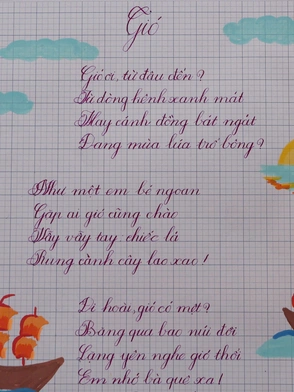 Gió
Gió ơi, từ đâu đến?
Từ dòng kênh xanh mát
Hay cánh đồng bát ngát
Đang mùa lúa trổ bông?
Như một em bé ngoan
Gặp ai gió cũng chào
Vẫy vẫy tay: chiếc lá
Rung cành cây lao xao!
Đi hoài, gió có mệt?
Băng qua bao núi đồi
Lặng yên nghe gió thổi
Em nhớ bà quê xa!